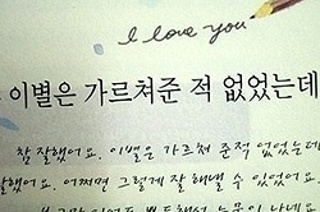 I love you
이별은 가르쳐준 적 없었는데
참 잘했어요. 이별은 가르쳐 준적 없었는데
잘했어요. 어쩌면 그렇게 잘 해낼 수 있었어요.